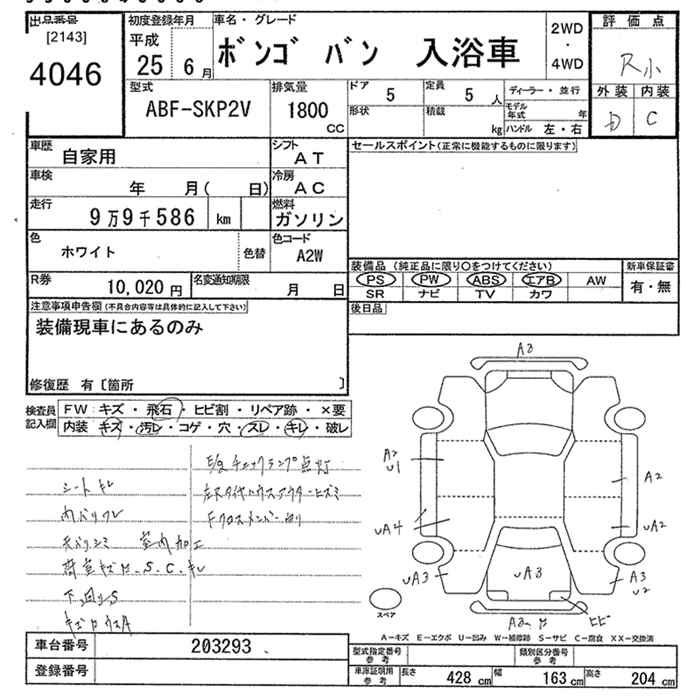 出品番号
[2143]
4046
初度登録年月
平成
25年6月
車名・グレード
ボンゴ バン 入浴車
2WD
・
4WD
評価点
R小
外装 内装
D C
型式
ABF-SKP2V
排気量
1800
CC
ドア
5
定員
5人
形状
積載
kg
ディーラー・並行
モデル年式 年
ハンドル 左・右
車歴
自家用
シフト
AT
車検
年 月( 日)
冷房
AC
走行
9万9千586 km
燃料
ガソリン
色
ホワイト
色替
色コード
A2W
R券
10,020円
名変通知期限
月 日
セールスポイント(正常に機能するものに限ります)
装備品(純正品に限り○をつけてください)
PS PW ABS エアB AW
SR ナビ TV カワ
新車保証書
有・無
後日品
注意事項申告欄(不具合内容等は具体的に記入して下さい)
装備現車にあるのみ
修復歴 有〔箇所 〕
検査員記入欄
FW:キズ・飛石・ヒビ割・リペア跡・×要
内装 キズ・汚レ・コゲ・穴・スレ・キレ・破レ
シートキレ
内ハリワレ
天ハリシミ 室内加工
荷室キズ凹.S.C.キレ
下回りS
チェックランプ点灯
左Rタイヤハウスアウターヒズミ
Fクロスメンバー曲り
A3
A2
U1
UA4
UA3
A2
UA2
A3
U2
UA3
ヒビ
スペア
A-キズ E-エクボ U-凹み W-補修跡 S-サビ C-腐食 XX-交換済
車台番号
203293
登録番号
型式指定番号
参考
類別区分番号
参考
車庫証明用
参考
長さ 428 cm 幅 163 cm 高さ 204 cm